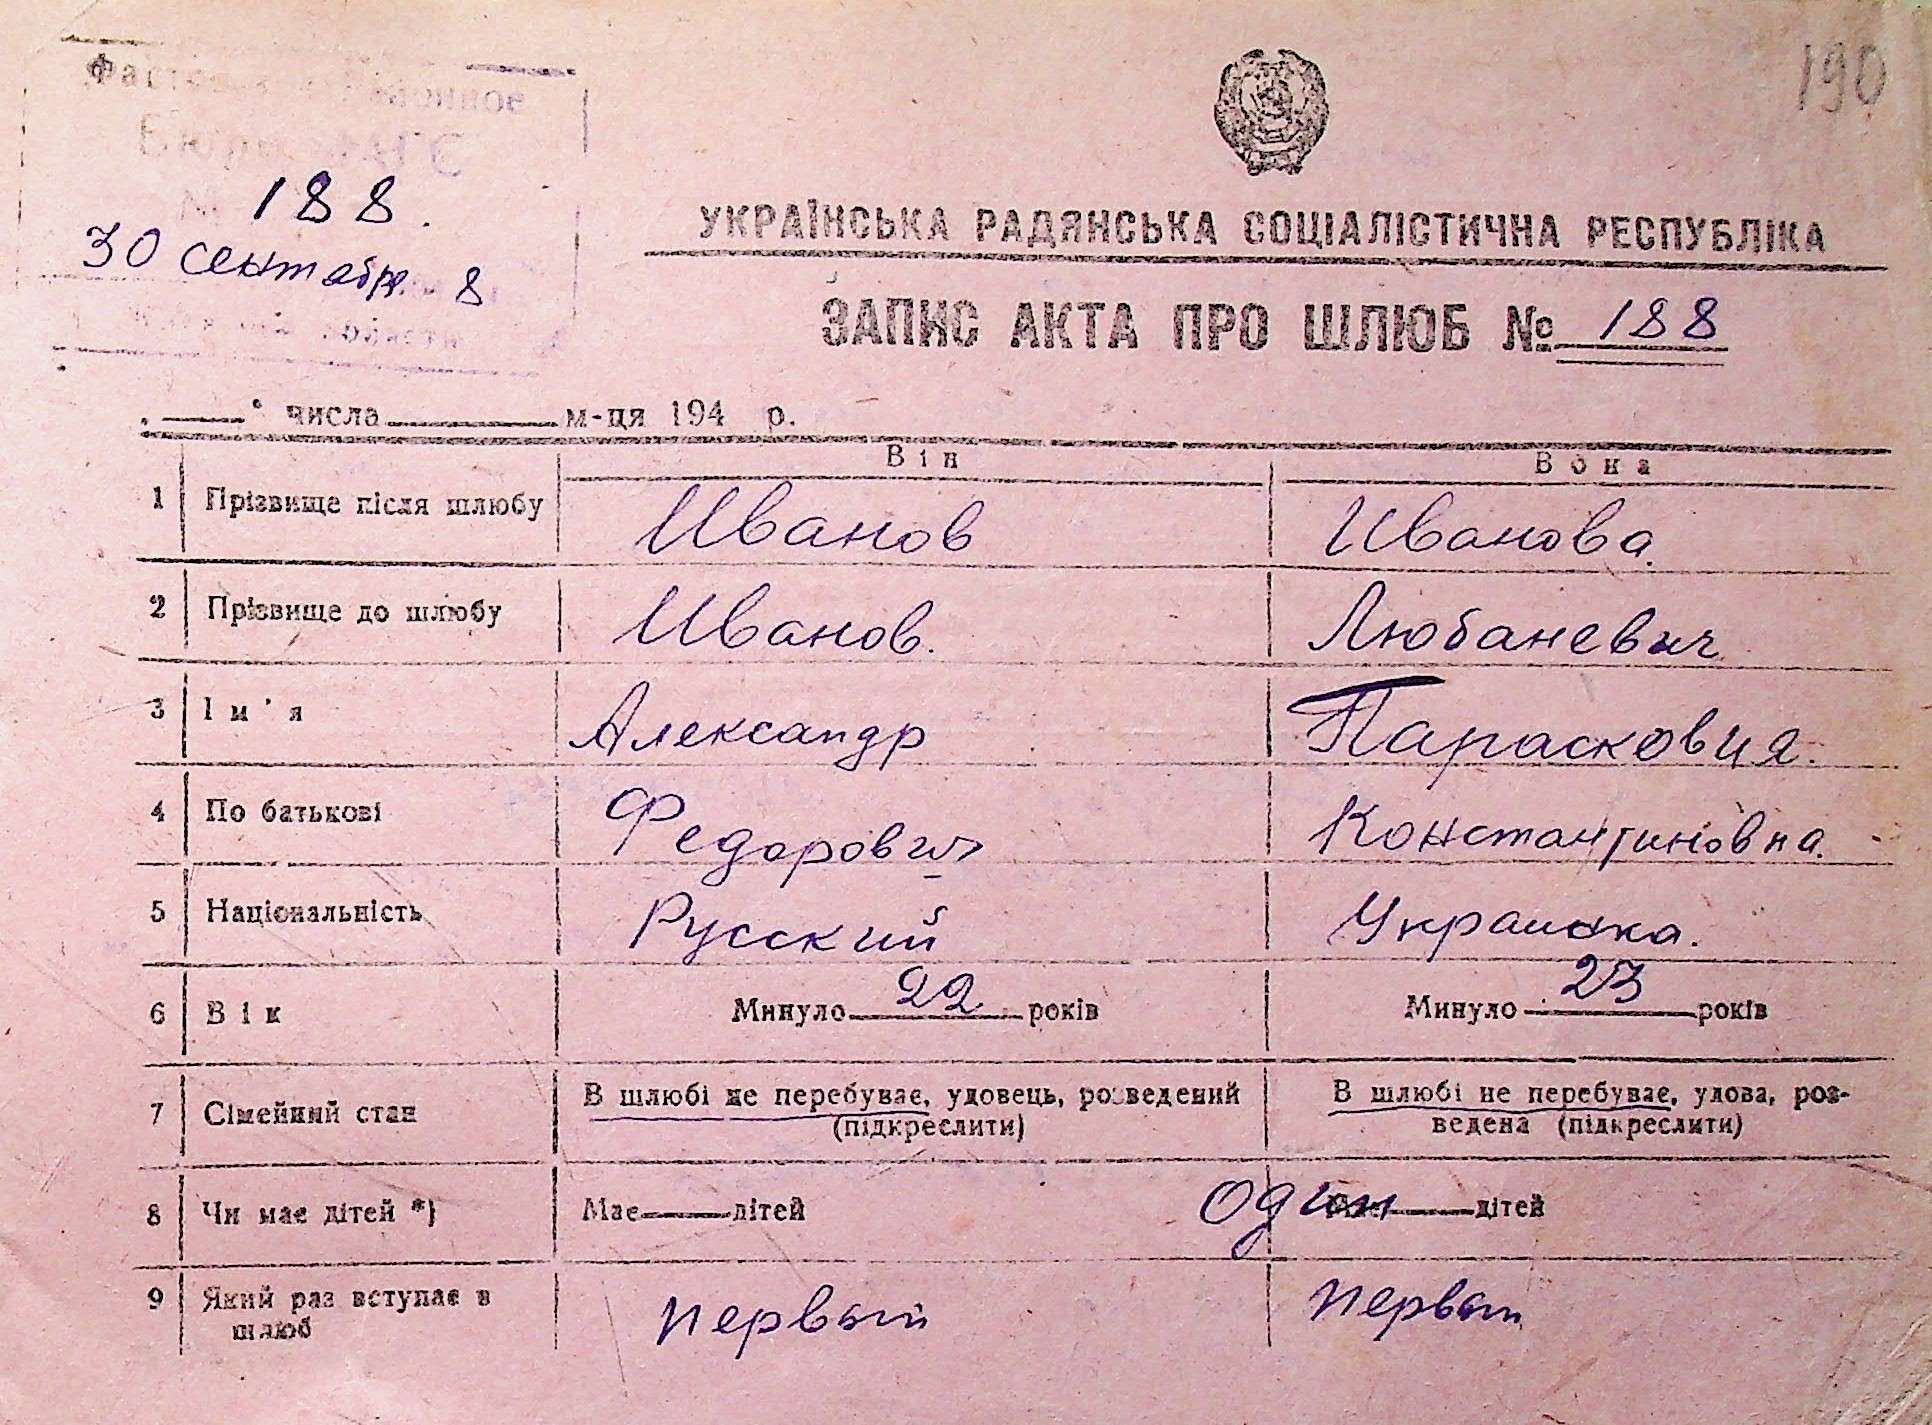 190
188.
30 сентябр. 8
УКРАЇНСЬКА РАДЯНСЬКА СОЦІАЛІСТИЧНА РЕСПУБЛІКА
ЗАПИС АКТА ПРО ШЛЮБ № 188
числа м-ця 194 р.
Він Вона
1 Прізвище після шлюбу Иванов Иванова
2 Прізвище до шлюбу Иванов. Любаневич
3 Ім'я Александр Парасковия.
4 По батькові Федорович Константиновна.
5 Національність Русский Украинка.
6 Вік Минуло 22 років Минуло 23 років
7 Сімейний стан В шлюбі не перебуває, удовець, розведений (підкреслити) В шлюбі не перебуває, удова, роз-
ведена (підкреслити)
8 Чи має дітей *) Має дітей один Має дітей
9 Який раз вступає в шлюб первый первый